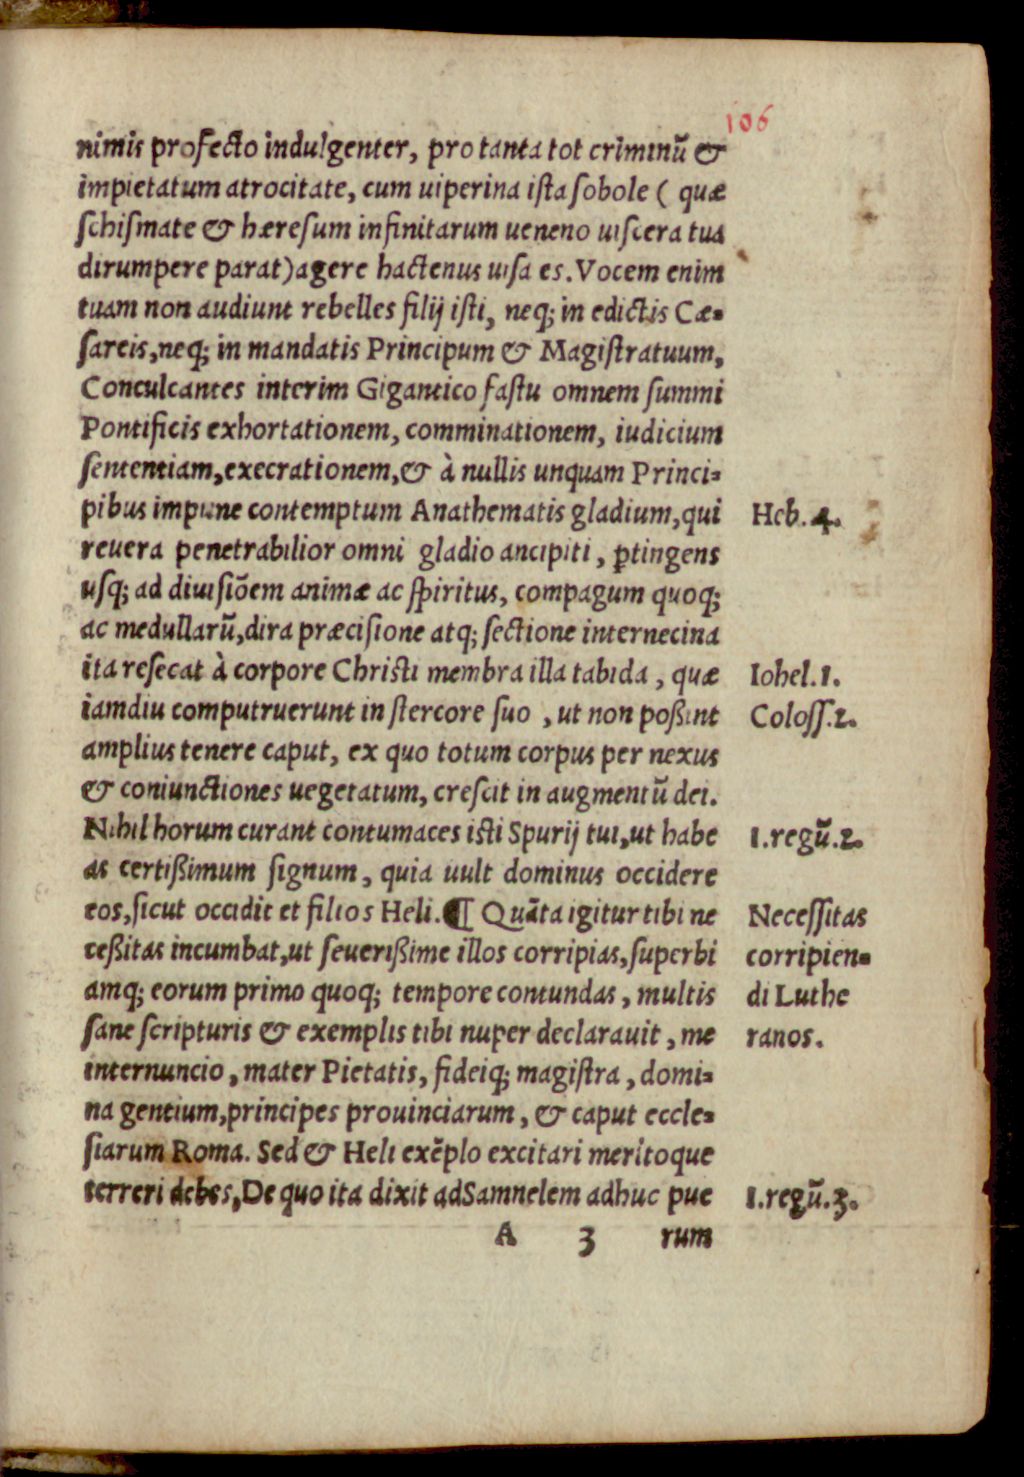 106
nimis profecto indulgenter, pro tanta tot criminū &
impietatum atrocitate, cum uiperina ista sobole ( quæ
schismate & hæresum infinitarum ueneno uiscera tua
dirumpere parat)agere hactenus uisa es. Vocem enim
tuam non audiunt rebelles filij isti, neq; in edictis Cæ-
sareis,neq; in mandatis Principum & Magistratuum,
Conculcantes interim Gigantico fastu omnem summi
Pontificis exhortationem, comminationem, iudicium
sententiam,execrationem,& à nullis unquam Princi-
pibus impune contemptum Anathematis gladium,qui
Heb. 4.
reuera penetrabilior omni gladio ancipiti, ꝑtingens
usq; ad diuisiōem animæ ac spiritus, compagum quoq;
ac medullarū,dira præcisione atq; sectione internecina
ita resecat à corpore Christi membra illa tabida, quæ
Iohel.1.
iamdiu computruerunt in stercore suo , ut non poßint
Coloss.2.
amplius tenere caput, ex quo totum corpus per nexus
& coniunctiones uegetatum, crescit in augmentū dei.
Nihil horum curant contumaces isti Spurij tui,ut habe
1.regū.2.
as certißimum signum, quia uult dominus occidere
eos,sicut occidit et filios Heli.¶ Quāta igitur tibi ne
Necessitas
ceßitas incumbat,ut seuerißime illos corripias,superbi
corripien-
amq; eorum primo quoq; tempore contundas, multis
di Luthe
sane scripturis & exemplis tibi nuper declarauit, me
ranos.
internuncio, mater Pietatis, fideiq; magistra, domi-
na gentium,principes prouinciarum, & caput eccle-
siarum Roma. Sed & Heli exēplo excitari meritoque
terreri debes,De quo ita dixit adSamnelem adhuc pue
1.regū.3.
A 3 rum